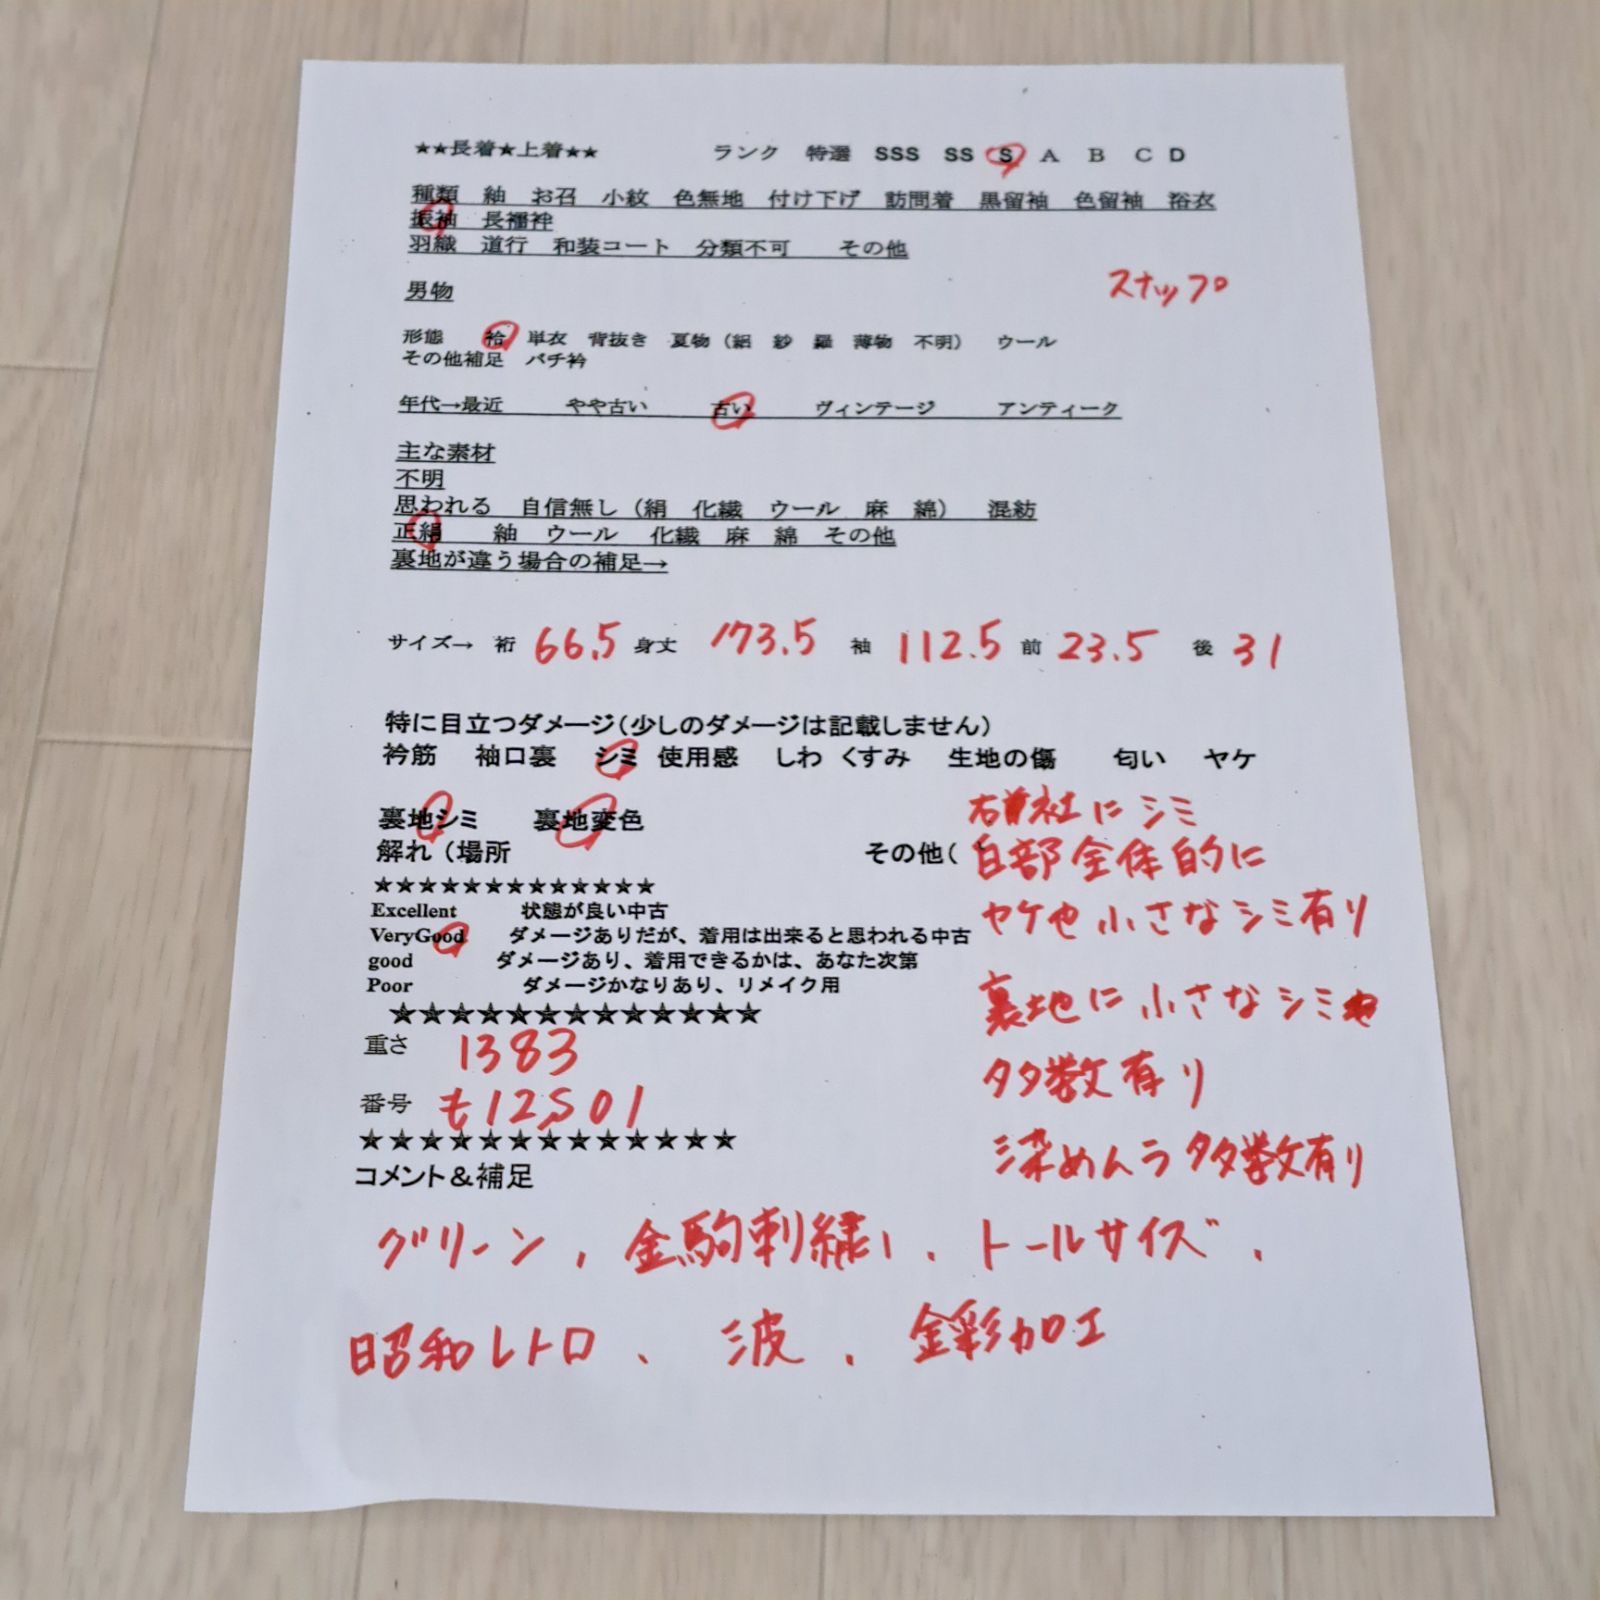 ★★長着★上着★★ ランク 特選 SSS SS S A B C D
種類 紬 お召 小紋 色無地 付け下げ 訪問着 黒留袖 色留袖 浴衣
振袖 長襦袢
羽織 道行 和装コート 分類不可 その他
男物 スナップ
形態 袷 単衣 背抜き 夏物（絽 紗 羅 薄物 不明） ウール
その他補足 バチ衿
年代→最近 やや古い 古い ヴィンテージ アンティーク
主な素材
不明
思われる 自信無し（絹 化繊 ウール 麻 綿） 混紡
正絹 紬 ウール 化繊 麻 綿 その他
裏地が違う場合の補足→
サイズ→ 裄 66.5 身丈 173.5 袖 112.5 前 23.5 後 31
特に目立つダメージ（少しのダメージは記載しません）
衿筋 袖口裏 シミ 使用感 しわ くすみ 生地の傷 匂い ヤケ
裏地シミ 裏地変色
右前衽にシミ
解れ（場所 その他（
白部全体的に
ヤケや小さなシミ有り
裏地に小さなシミ
多数有り
染めムラ多数有り
★★★★★★★★★★★★★
Excellent 状態が良い中古
VeryGood ダメージありだが、着用は出来ると思われる中古
good ダメージあり、着用できるかは、あなた次第
Poor ダメージかなりあり、リメイク用
★★★★★★★★★★★★★
重さ 1383
番号 も12501
★★★★★★★★★★★★★
コメント＆補足
グリーン、金駒刺繍、トールサイズ、
昭和レトロ、波、金彩加工